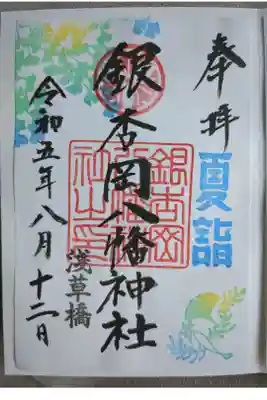 奉拝
夏詣
銀杏岡八幡神社
銀杏岡八幡神社之印
浅草橋
令和五年八月十二日